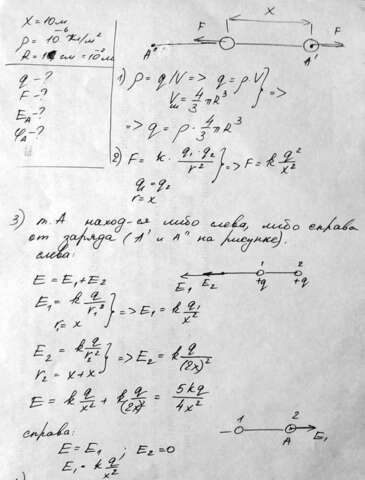 X = 10м
ρ = 10⁻⁶ Кл/м²
R = 1 см = 10⁻²м
q - ?
F - ?
E_A - ?
φ_A - ?
X
F
F
A"
A'
1) ρ = q/V => q = ρ·V
V_ш = 4/3 πR³
} =>
=> q = ρ · 4/3 πR³
2) F = k · q₁·q₂/r²
q₁ = q₂
r = x
} => F = k q²/x²
3) т. А наход-ся либо слева, либо справа
от заряда (A' и A" на рисунке).
слева:
E = E₁ + E₂
E₁ E₂ 1 +q 2 +q
E₁ = k q/r₁²
r₁ = x
} => E₁ = k q/x²
E₂ = k q/r₂²
r₂ = x + x
} => E₂ = k q/(2x)²
E = k q/x² + k q/(2x)² = 5kq/4x²
справа:
1 2 A E₁
E = E₁ ; E₂ = 0
E₁ = k q/x²